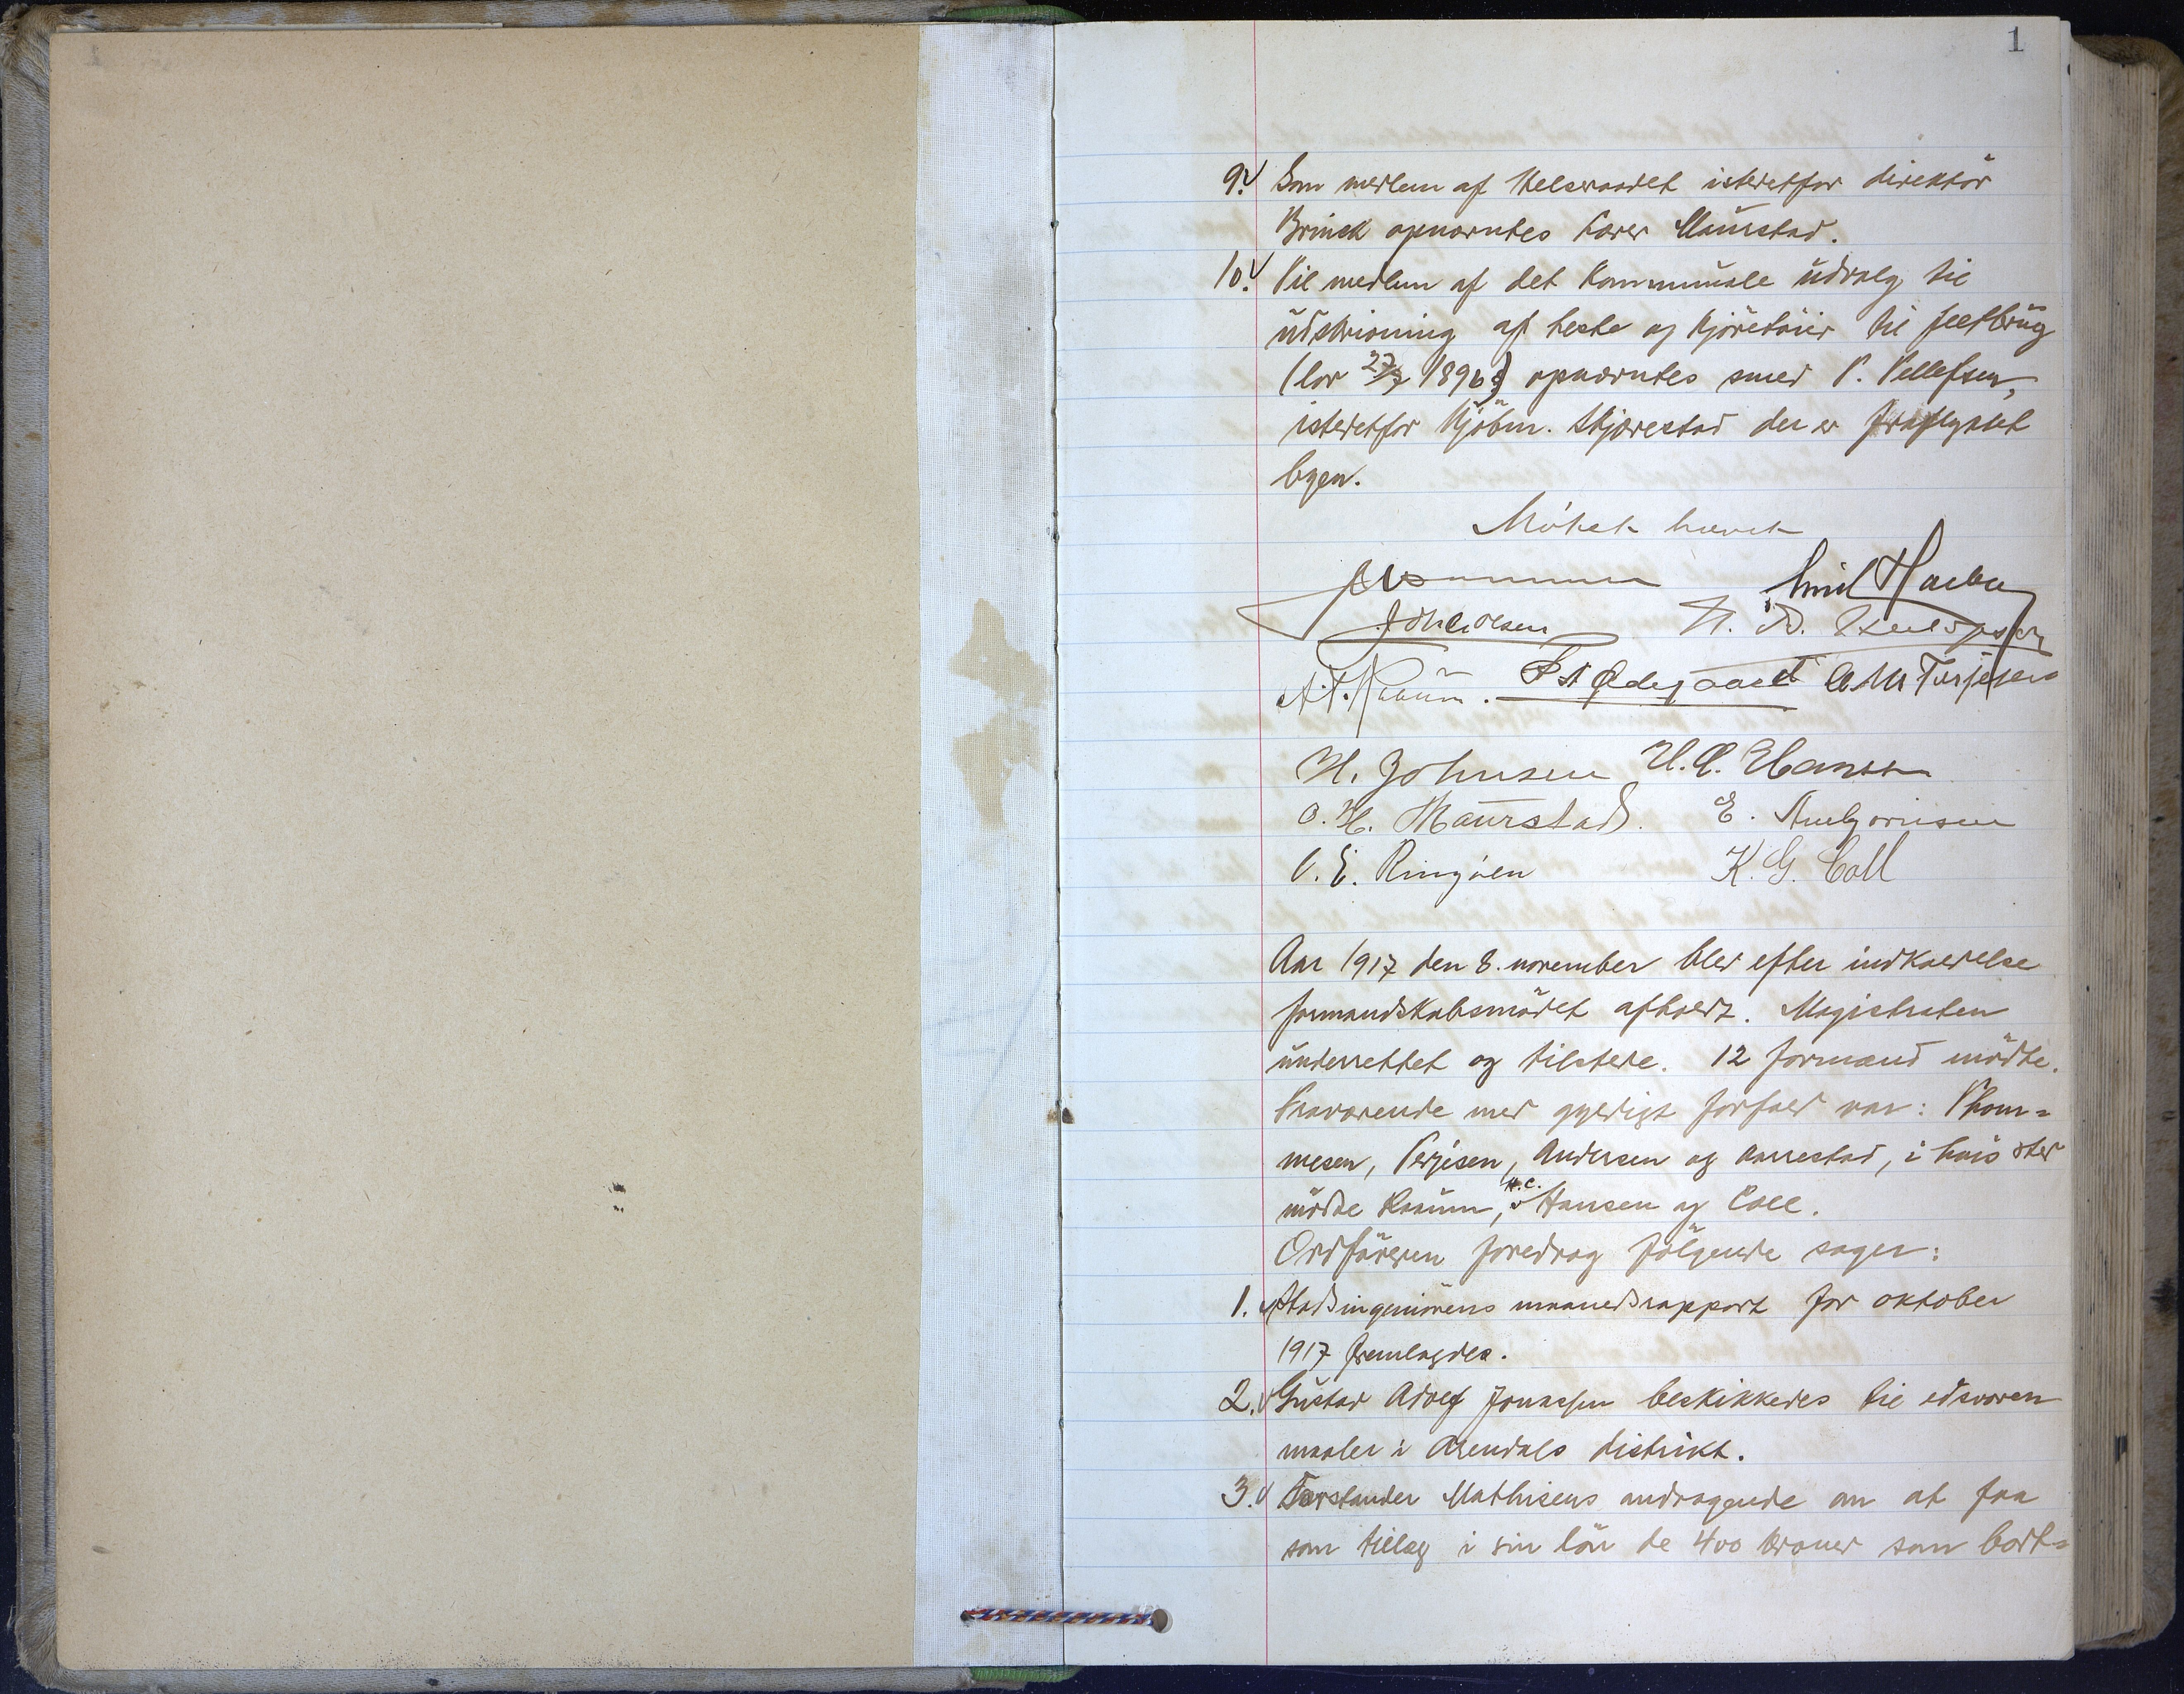 1
9. Som medlem af Helseraadet istedetfor direktör
Brinch opnævntes lærer Maurstad.
10. Til medlem af det kommunale udvalg til
udskrivning af heste og kjöretöier til feltbrug
(lov 27/7 1896) opnævntes smed T. Tellefsen,
istedetfor kjöbm. Skjærestad der er fraflyttet
byen.
Mötet hævet
Emil
Joh. Olsen N. B.
A. T. Raaum. Ødegaard Terjesen
H. Johnsen H. C. Hansen
O. H. Maurstad. E. Arnbjörnsen
O. E. Ringöen K. G. Coll
Aar 1917 den 8. november blev efter indkaldelse
formandskabsmödet afholdt. Magistraten
underrettet og tilstede. 12 formænd mödte.
Fraværende med gyldigt forfald var: Thom-
mesen, Terjesen, Andersen og Aarrestad, i hvis sted
mödte Raaum, H.C. Hansen og Coll.
Ordföreren foredrog fölgende sager:
1. Stadsingeniörens maanedsrapport for oktober
1917 fremlagdes.
2. Gustav Adolf Jonassen beskikkedes til edsvoren
maaler i Arendals distrikt.
3. Forstander Mathisens andragende om at faa
som tillæg i sin lön de 400 kroner som bort-